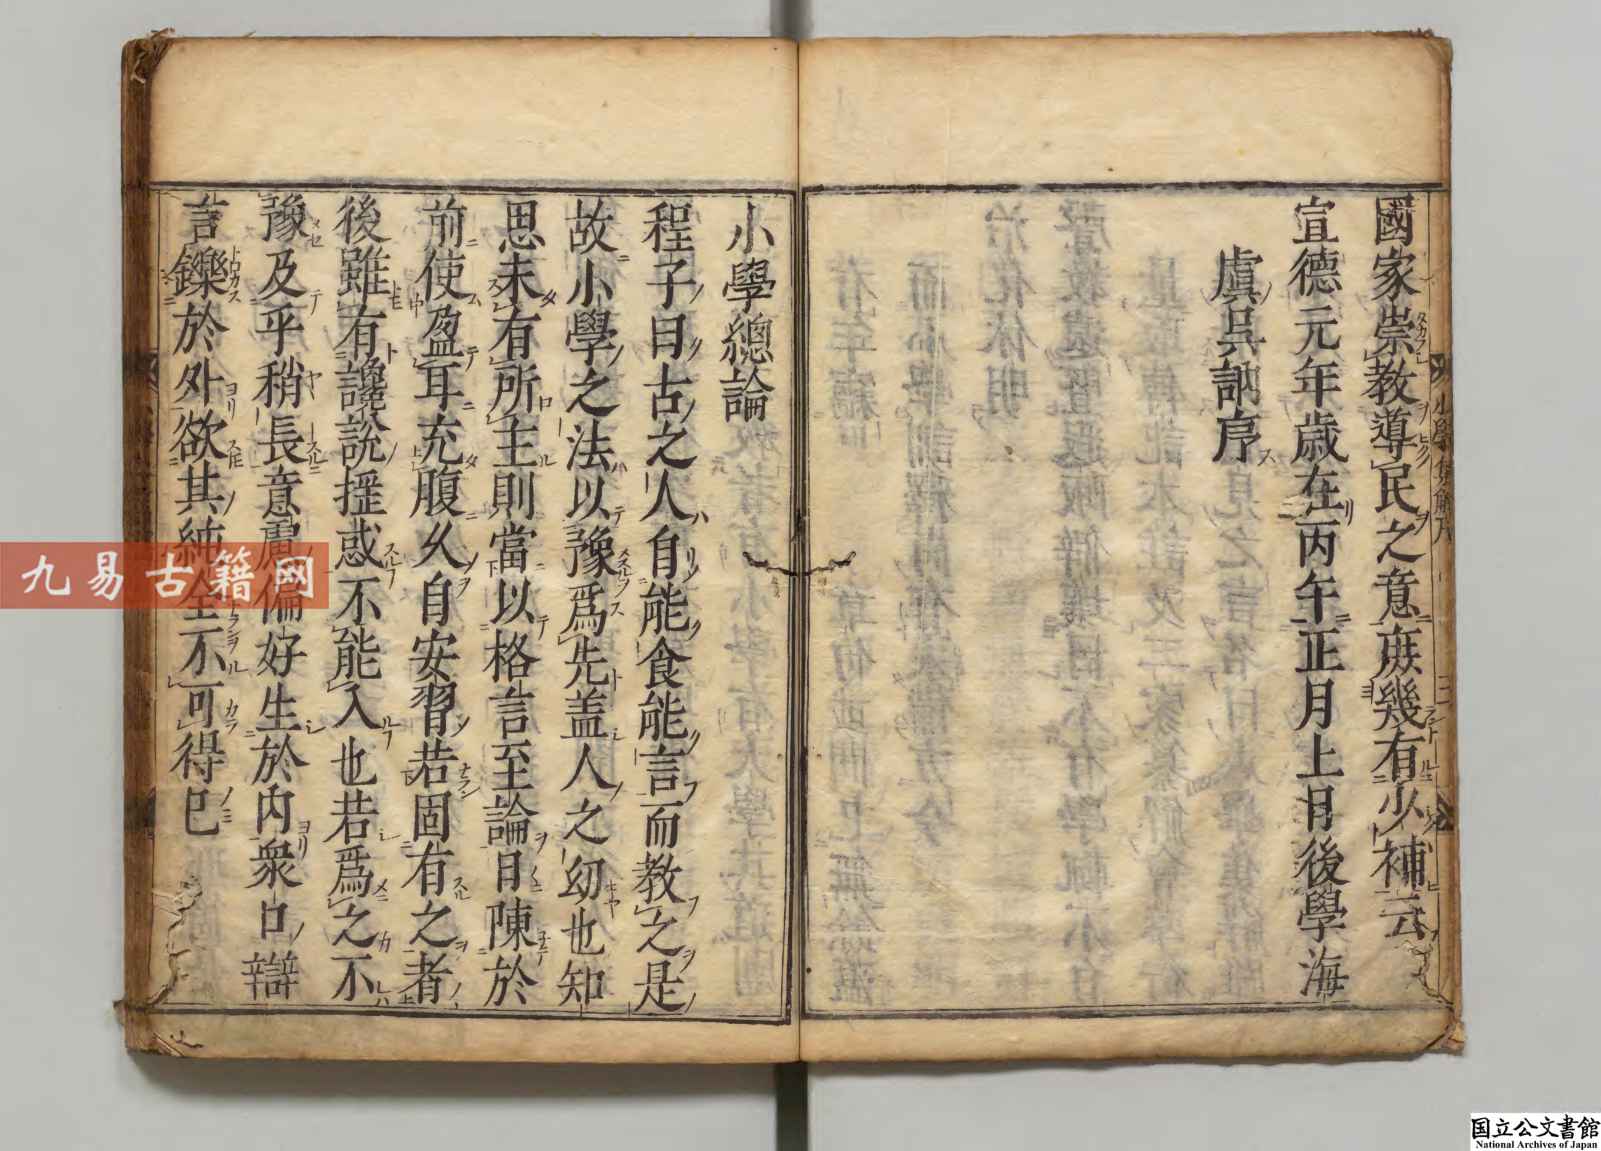 國家崇教導民之意庶幾有少補云
宣德元年歳在丙午正月上日後學海
虞吳訥序
小學總論
程子曰古之人自能食能言而教之是
故小學之法以豫爲先蓋人之幼也知
思未有所主則當以格言至論日陳於
前使盈耳充腹久自安習若固有之者
後雖有讒說揺惑不能入也若爲之不
豫及乎稍長意慮偏好生於内衆口辯
言鑠於外欲其純全不可得已
九易古籍网
国立公文書館
National Archives of Japan